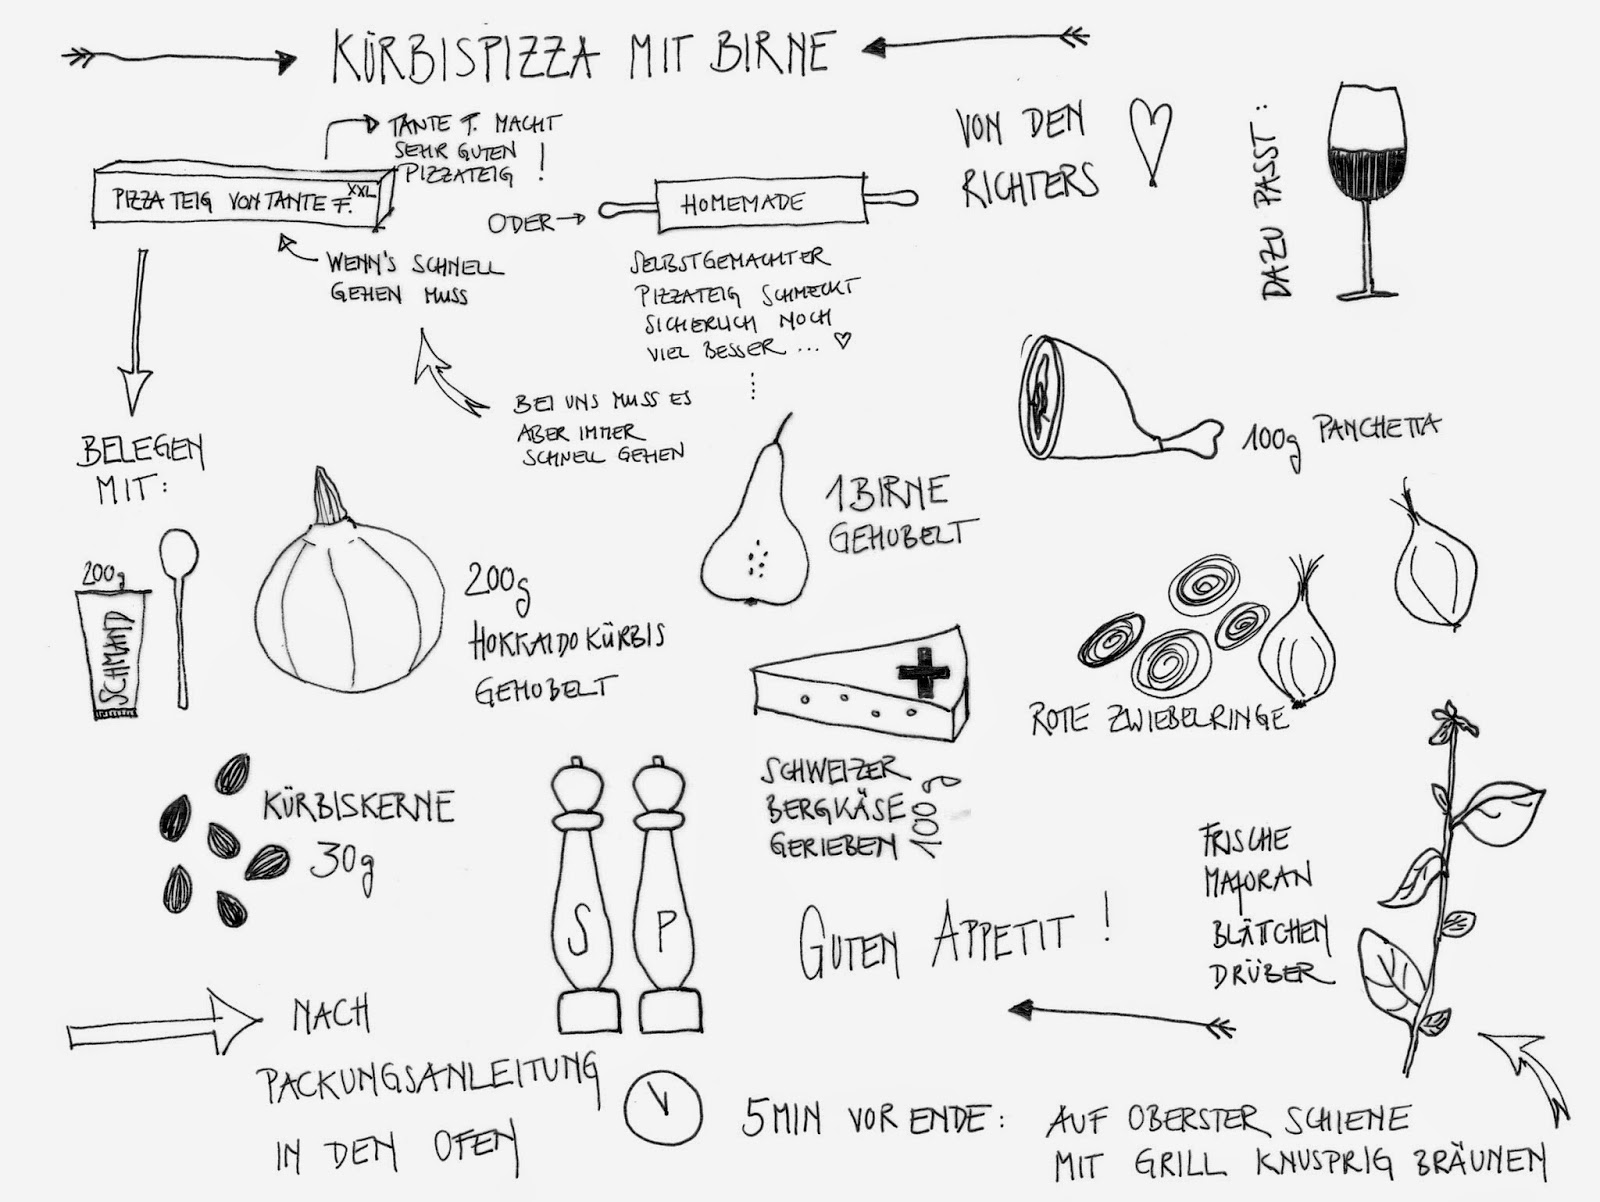 KÜRBISPIZZA MIT BIRNE
TANTE F. MACHT
SEHR GUTEN
PIZZATEIG !
PIZZATEIG VON TANTE F.
XXL
WENN'S SCHNELL
GEHEN MUSS
ODER
HOMEMADE
SELBSTGEMACHTER
PIZZATEIG SCHMECKT
SICHERLICH NOCH
VIEL BESSER ... ♡
BEI UNS MUSS ES
ABER IMMER
SCHNELL GEHEN
VON DEN
RICHTERS
DAZU PASST:
BELEGEN
MIT:
200g
SCHMAND
200g
HOKKAIDO KÜRBIS
GEHOBELT
1 BIRNE
GEHOBELT
100g PANCHETTA
ROTE ZWIEBELRINGE
KÜRBISKERNE
30g
S
P
SCHWEIZER
BERGKÄSE
GERIEBEN
100g
FRISCHE
MAJORAN
BLÄTTCHEN
DRÜBER
GUTEN APPETIT !
NACH
PACKUNGSANLEITUNG
IN DEN OFEN
5 MIN VOR ENDE: AUF OBERSTER SCHIENE
MIT GRILL KNUSPRIG BRÄUNEN